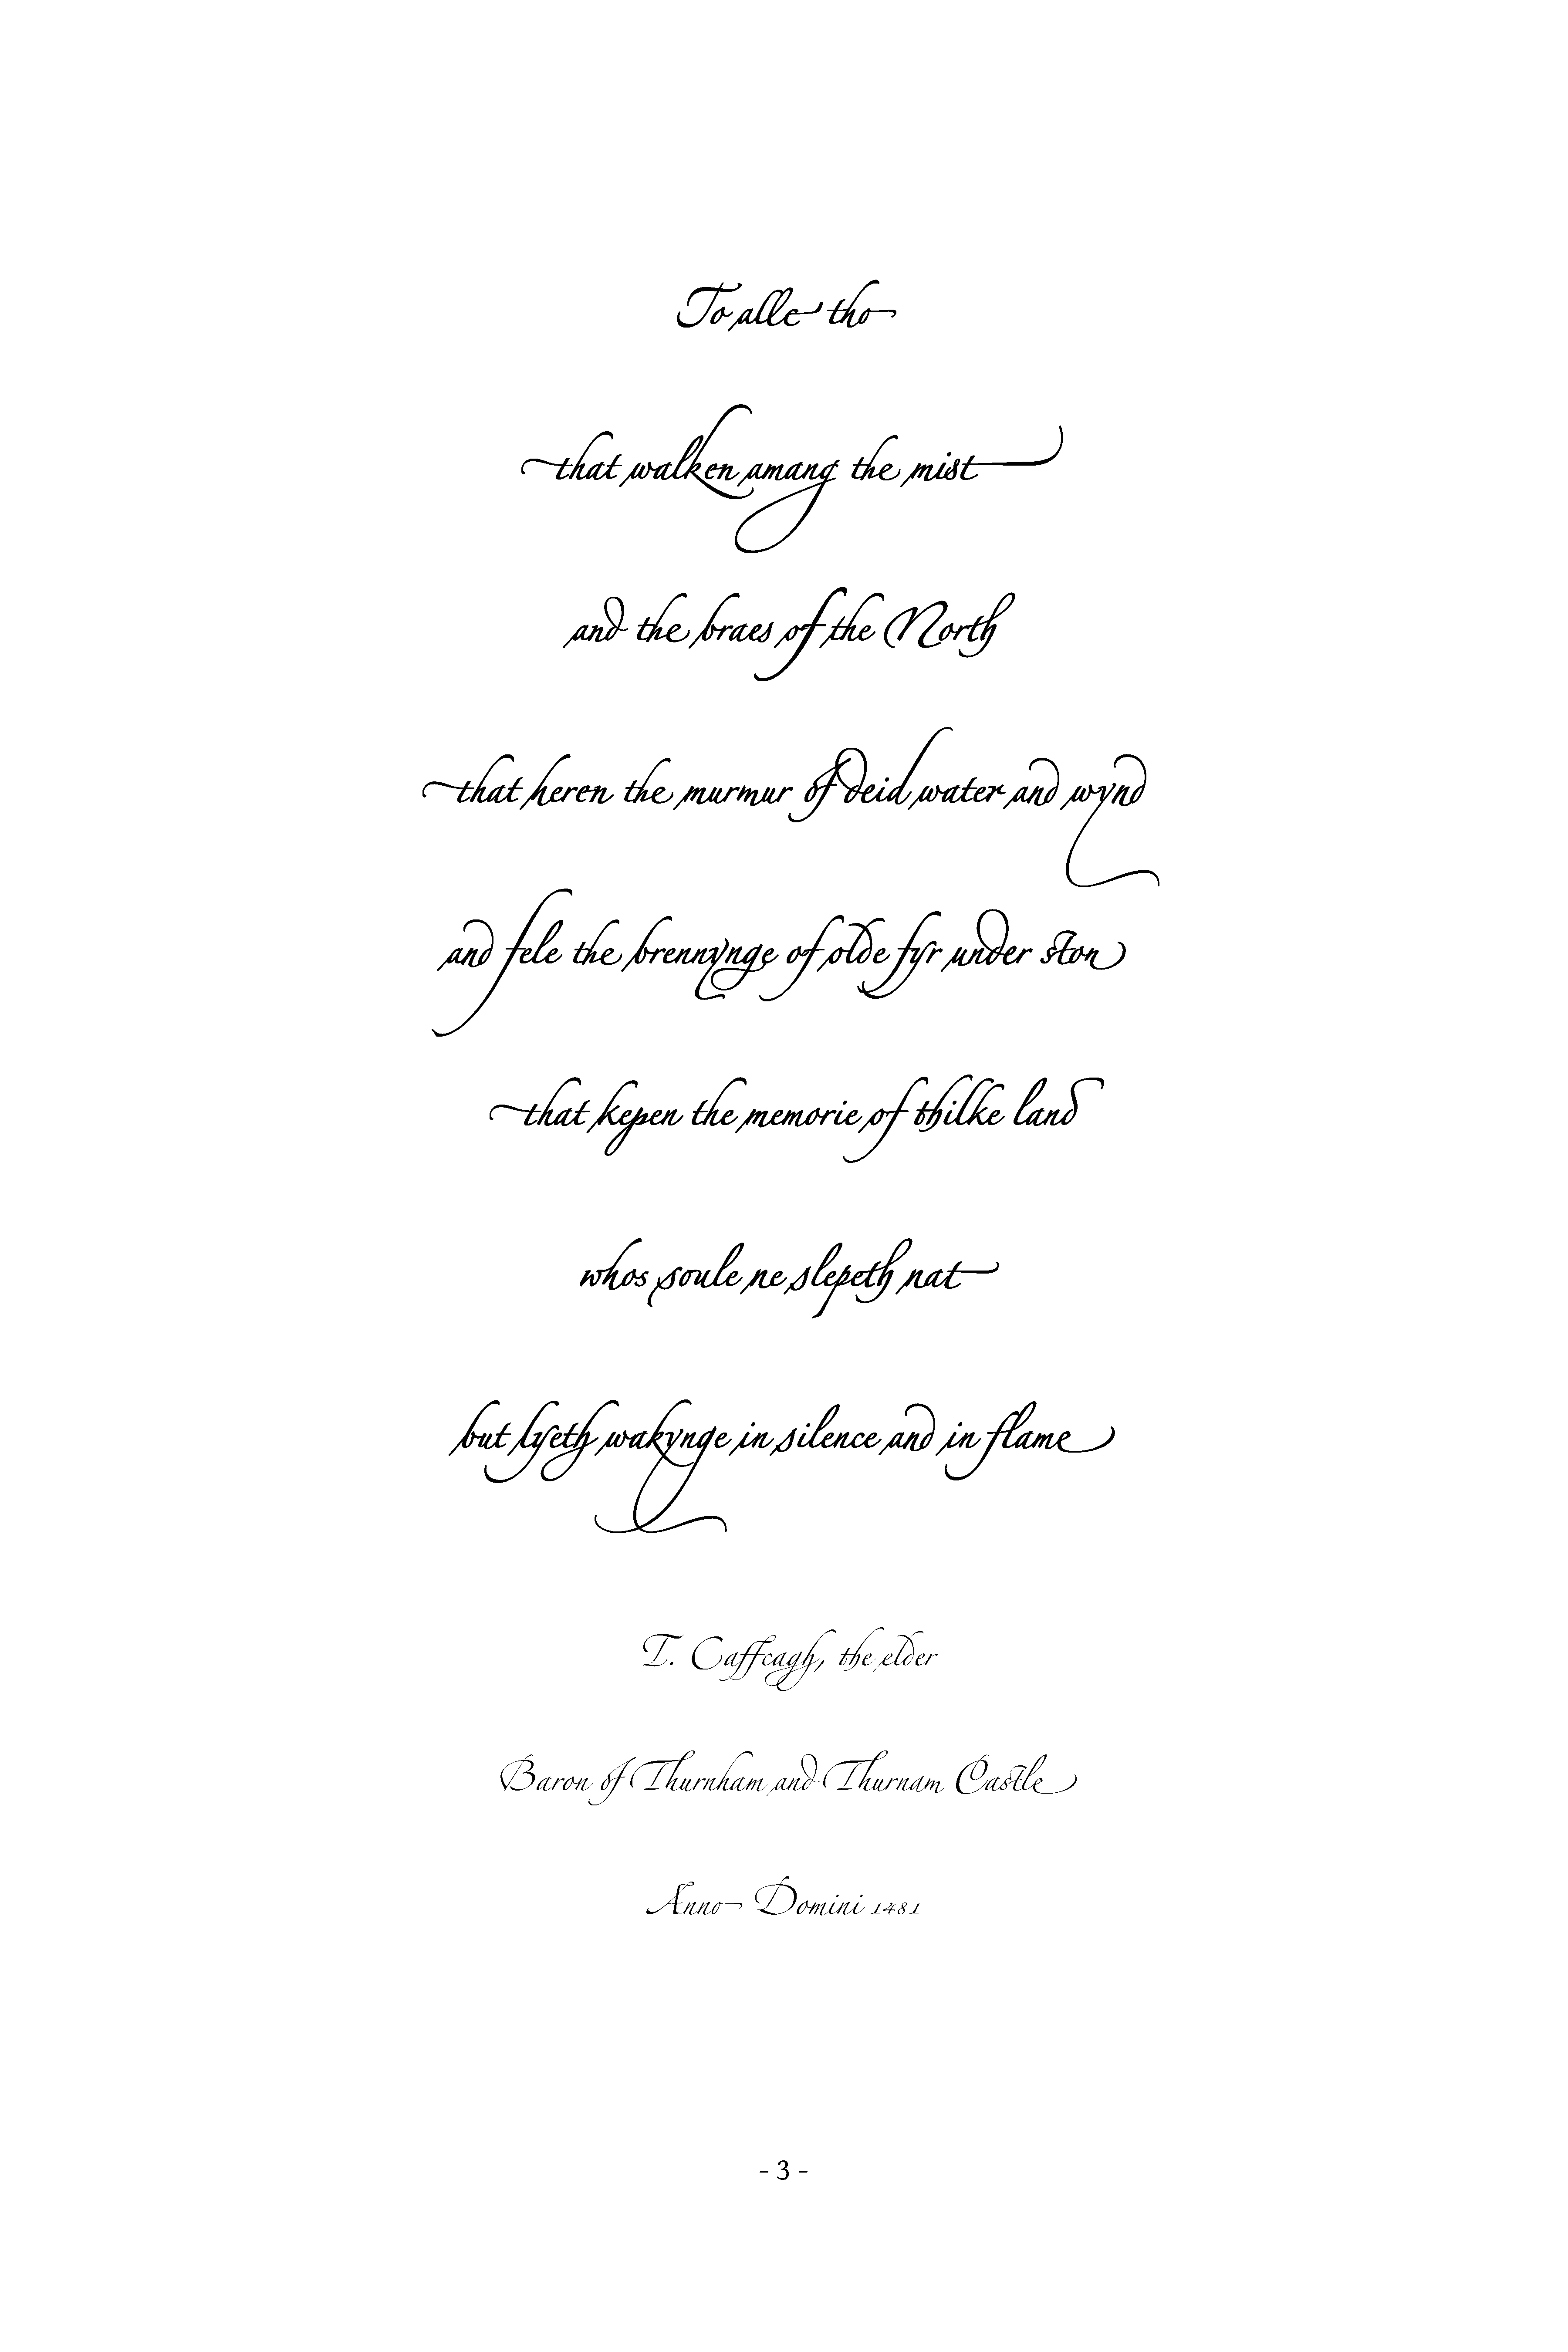 To alle tho
that walken amang the mist
and the braes of the North
that heren the murmur of deid water and wynd
and fele the brennynge of olde fyr under ston
that kepen the memorie of thilke land
whos soule ne slepeth nat
but lyeth wakynge in silence and in flame
T. Caffcagh, the elder
Baron of Thurnham and Thurnam Castle
Anno Domini 1481
- 3 -